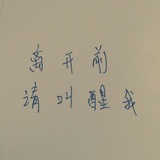 离开前
请叫醒我